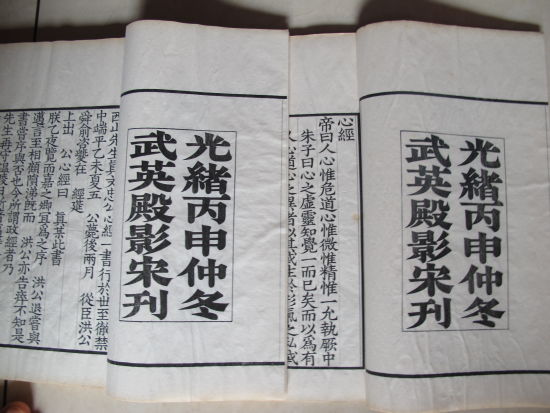 光緒丙申仲冬
武英殿影宋刊
心經
帝曰人心惟危道心惟微惟精惟一允執厥中
朱子曰心之虛靈知覺一而已矣而以為有
人心道心之異者以其或生於形氣之私或
光緒丙申仲冬
武英殿影宋刊
西山先生真文忠公心經一書行于世至徹禁
中端平乙未夏五 公薨後兩月 從臣洪公
舜俞咨夔在 經筵
上出 公心經曰 真某此書
朕乙夜覽而嘉之卿宜為之序 洪公退嘗與
言至相顧 既而 洪公亦告薨不知是
書嘗序與否也 所謂政經者乃
先生再守溫陵日所